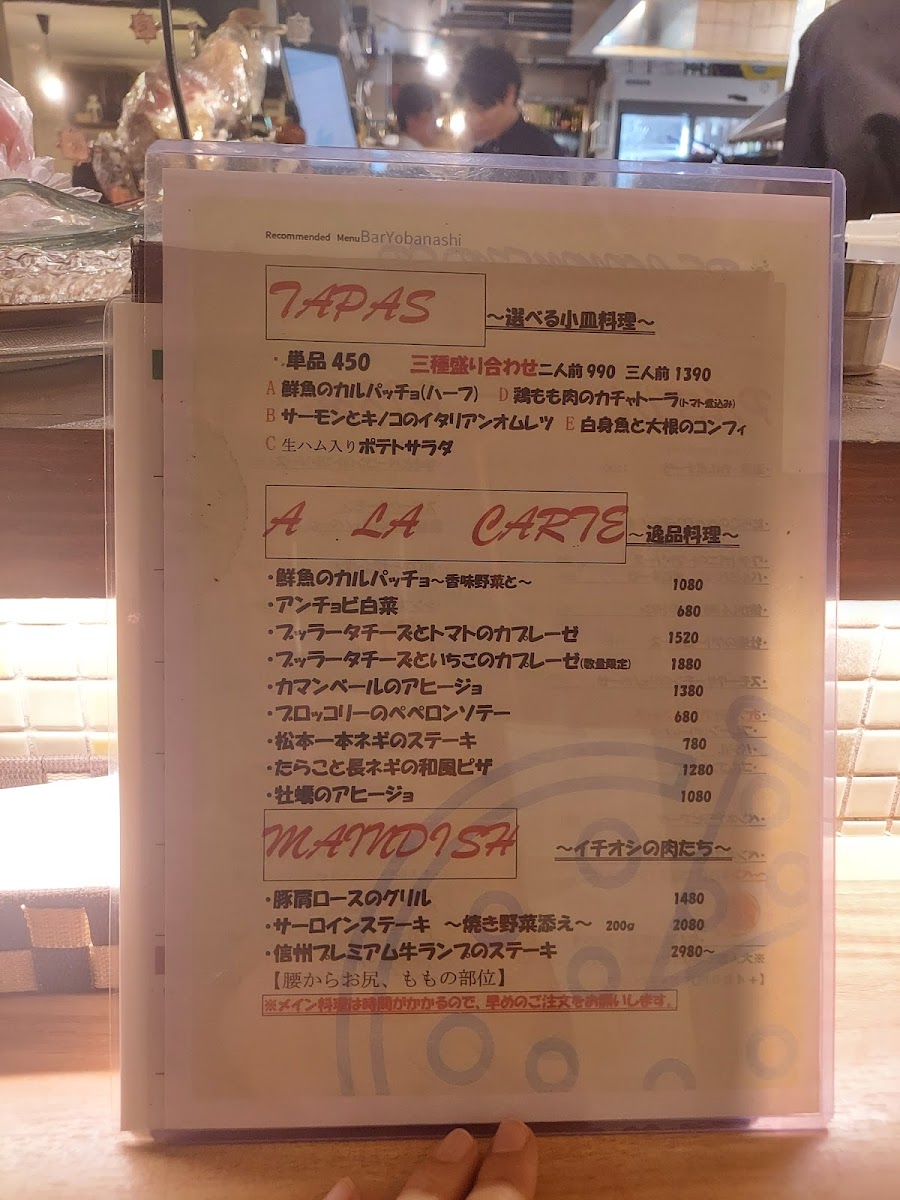 Recommended Menu BarYobanashi
TAPAS ～選べる小皿料理～
・単品 450 三種盛り合わせ 二人前 990 三人前 1390
A 鮮魚のカルパッチョ(ハーフ) D 鶏もも肉のカチャトーラ(トマト煮込み)
B サーモンとキノコのイタリアンオムレツ E 白身魚と大根のコンフィ
C 生ハム入りポテトサラダ
A LA CARTE ～逸品料理～
・鮮魚のカルパッチョ～香味野菜と～ 1080
・アンチョビ白菜 680
・ブッラータチーズとトマトのカプレーゼ 1520
・ブッラータチーズといちごのカプレーゼ(数量限定) 1880
・カマンベールのアヒージョ 1380
・ブロッコリーのペペロンソテー 680
・松本一本ネギのステーキ 780
・たらこと長ネギの和風ピザ 1280
・牡蠣のアヒージョ 1080
MAINDISH ～イチオシの肉たち～
・豚肩ロースのグリル 1480
・サーロインステーキ ～焼き野菜添え～ 200g 2080
・信州プレミアム牛ランプのステーキ 2980～
【腰からお尻、ももの部位】
※メイン料理は時間がかかるので、早めのご注文をお願いします。